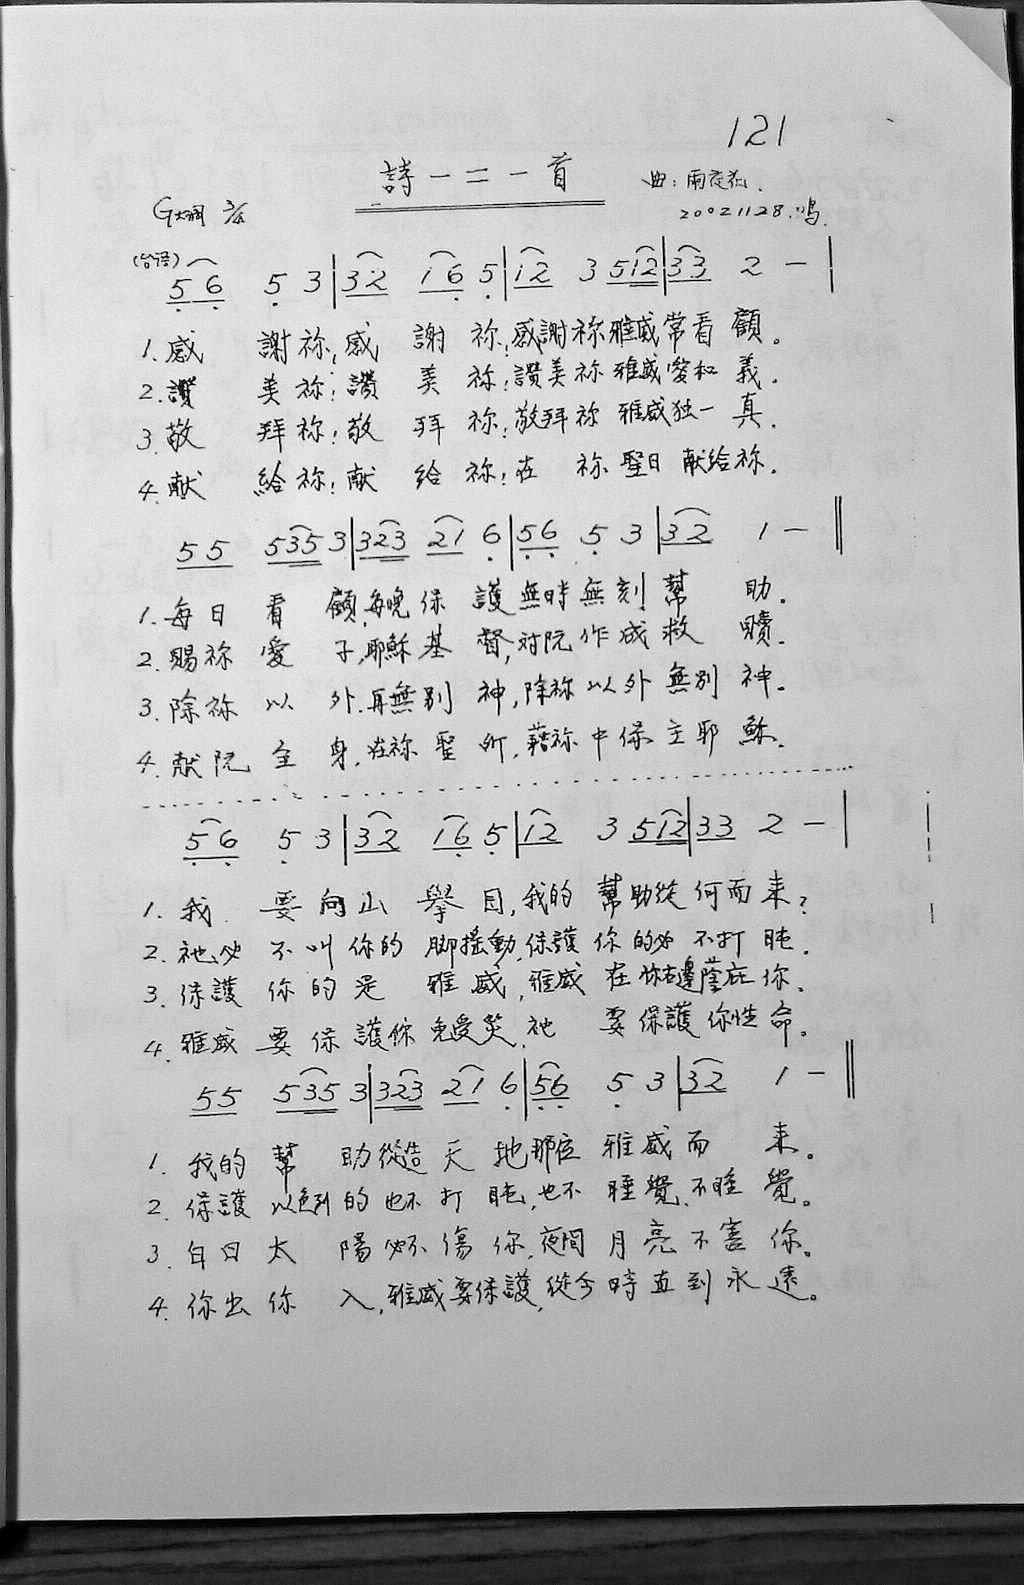 121
詩一二一首
曲：雨夜花.
G大調 3/4
20021128.鳴.
(台語)
5 6 5 3 | 3 2 1 6 5 | 1 2 3 5 1 2 | 3 3 2 － |
1. 感謝祢，感謝祢；感謝祢雅威常看顧。
2. 讚美祢；讚美祢；讚美祢雅威愛和義.
3. 敬拜祢；敬拜祢；敬拜祢雅威独一真.
4. 献給祢；献給祢；在祢聖日献給祢.
5 5 5 3 5 3 | 3 2 3 2 1 6 | 5 6 5 3 | 3 2 1 － ‖
1. 每日看顧，每晚保護無時無刻幫助.
2. 賜祢愛子，耶穌基督，対阮作成救贖.
3. 除祢以外.再無別神，除祢以外無別神.
4. 献阮全身，在祢聖所，藉祢中保主耶穌.
5 6 5 3 | 3 2 1 6 5 | 1 2 3 5 1 2 | 3 3 2 － |
1. 我要向山舉目，我的幫助從何而来？
2. 祂必不叫你的脚搖動，保護你的必不打盹.
3. 保護你的是雅威，雅威在你右邊蔭庇你.
4. 雅威要保護你免受災，祂要保護你性命.
5 5 5 3 5 3 | 3 2 3 2 1 6 | 5 6 5 3 | 3 2 1 － ‖
1. 我的幫助從造天地那位雅威而来.
2. 保護以色列的也不打盹，也不睡覺，不睡覺。
3. 白日太陽必不傷你，夜間月亮不害你。
4. 你出你入，雅威要保護，從今時直到永遠。